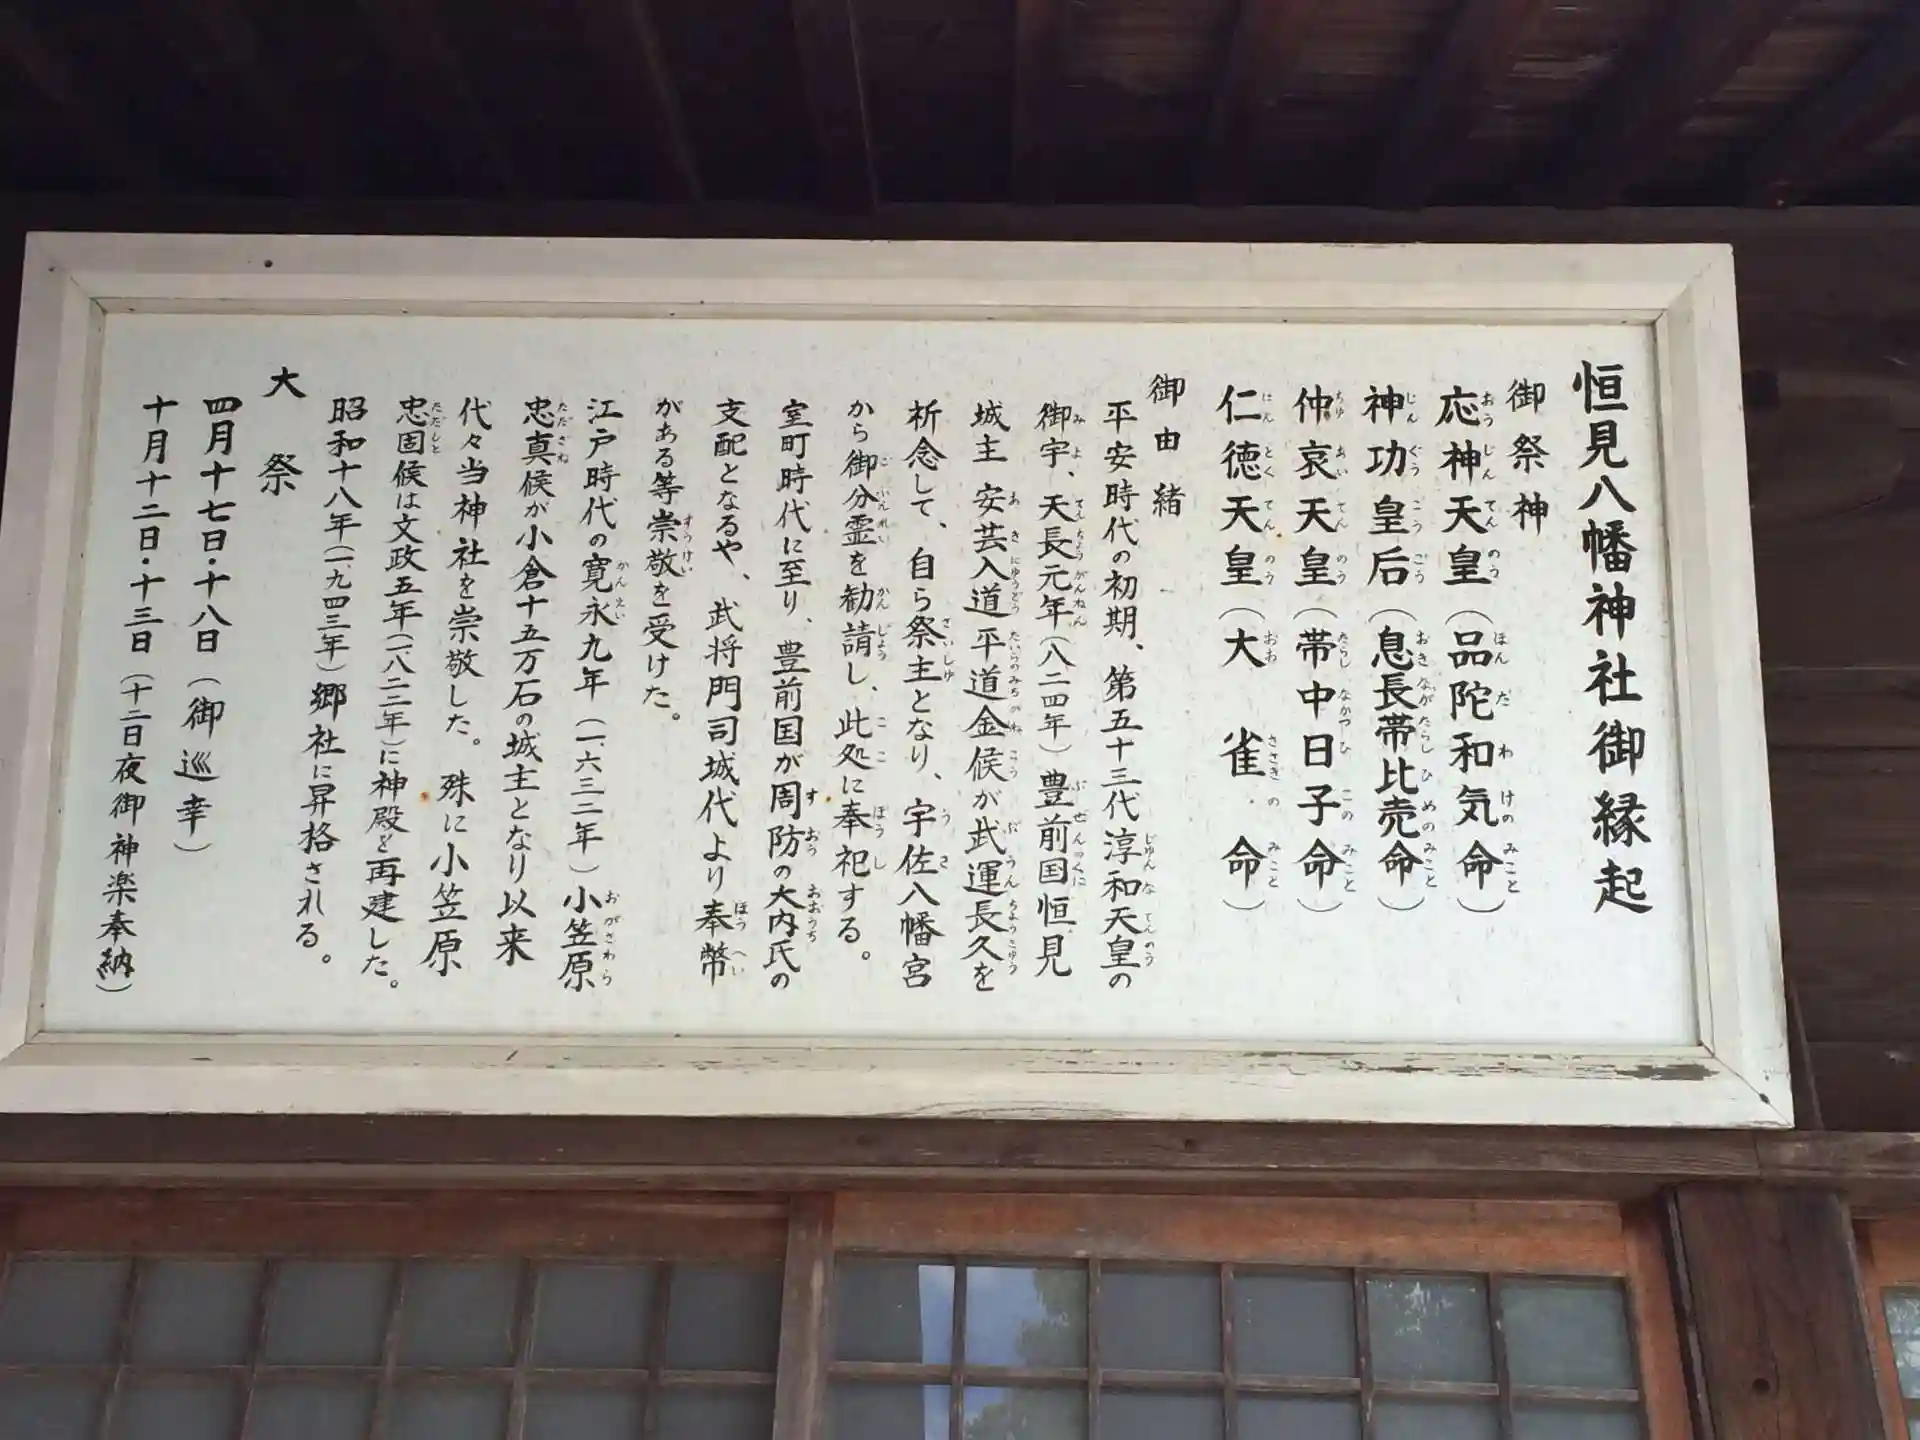 恒見八幡神社御縁起
御祭神
応神天皇（品陀和気命）
神功皇后（息長帯比売命）
仲哀天皇（帯中日子命）
仁徳天皇（大雀命）
御由緒
平安時代の初期、第五十三代淳和天皇の
御宇、天長元年（八二四年）豊前国恒見
城主安芸入道平道金候が武運長久を
祈念して、自ら祭主となり、宇佐八幡宮
から御分霊を勧請し、此処に奉祀する。
室町時代に至り、豊前国が周防の大内氏の
支配となるや、武将門司城代より奉幣
がある等崇敬を受けた。
江戸時代の寛永九年（一、六三二年）小笠原
忠真候が小倉十五万石の城主となり以来
代々当神社を崇敬した。殊に小笠原
忠固候は文政五年（一、八二二年）に神殿を再建した。
昭和十八年（一、九四三年）郷社に昇格される。
大祭
四月十七日・十八日（御巡幸）
十月十二日・十三日（十二日夜御神楽奉納）